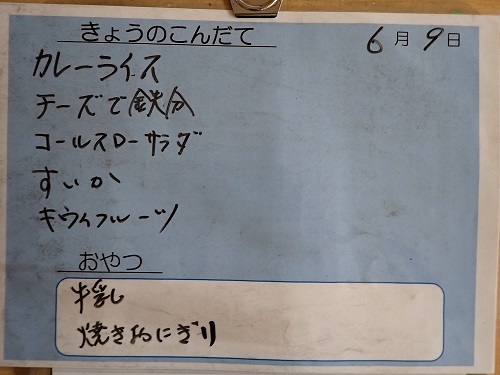 きょうのこんだて 6月9日
カレーライス
チーズで鉄分
コールスローサラダ
すいか
キウイフルーツ
おやつ
牛乳
焼きおにぎり